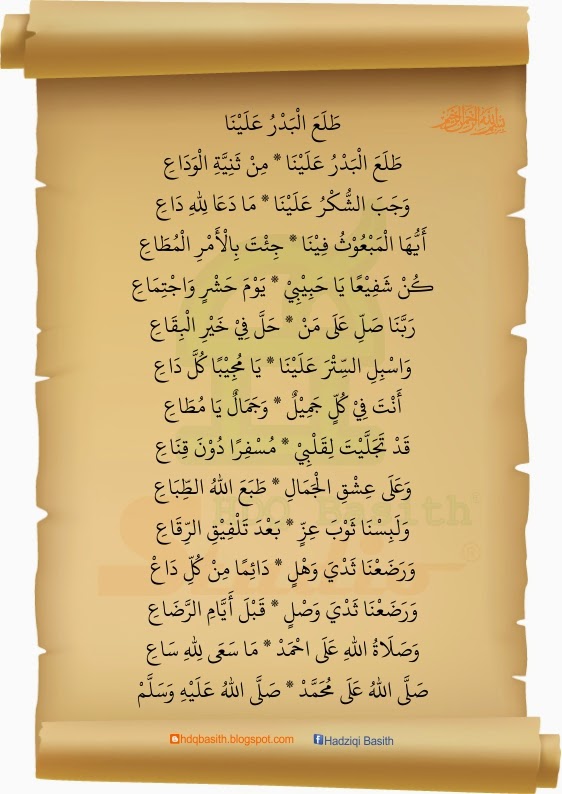 طَلَعَ الْبَدْرُ عَلَيْنَا
طَلَعَ الْبَدْرُ عَلَيْنَا * مِنْ ثَنِيَّةِ الْوَدَاعِ
وَجَبَ الشُّكْرُ عَلَيْنَا * مَا دَعَا لِلّٰهِ دَاعِ
أَيُّهَا الْمَبْعُوْثُ فِيْنَا * جِئْتَ بِالْأَمْرِ الْمُطَاعِ
كُنْ شَفِيْعًا يَا حَبِيْبِيْ * يَوْمَ حَشْرٍ وَاجْتِمَاعِ
رَبَّنَا صَلِّ عَلَى مَنْ * حَلَّ فِيْ خَيْرِ الْبِقَاعِ
وَاسْبِلِ السِّتْرَ عَلَيْنَا * يَا مُجِيْبًا كُلَّ دَاعِ
أَنْتَ فِيْ كُلٍّ جَمِيْلٌ * وَجَمَالٌ يَا مُطَاعِ
قَدْ تَجَلَّيْتَ لِقَلْبِيْ * مُسْفِرًا دُوْنَ قِنَاعِ
وَعَلَى عِشْقِ الْجَمَالِ * طَبَعَ اللهُ الطِّبَاعِ
وَلَبِسْنَا ثَوْبَ عِزٍّ * بَعْدَ تَلْفِيْقِ الرِّقَاعِ
وَرَضَعْنَا ثَدْيَ وَهْلٍ * دَائِمًا مِنْ كُلِّ دَاعْ
وَرَضَعْنَا ثَدْيَ وَصْلٍ * قَبْلَ أَيَّامِ الرَّضَاعِ
وَصَلَاةُ اللهِ عَلَى احْمَدْ * مَا سَعَى لِلّٰهِ سَاعِ
صَلَّى اللهُ عَلَى مُحَمَّدْ * صَلَّى اللهُ عَلَيْهِ وَسَلَّمْ
hdqbasith.blogspot.com Hadziqi Basith